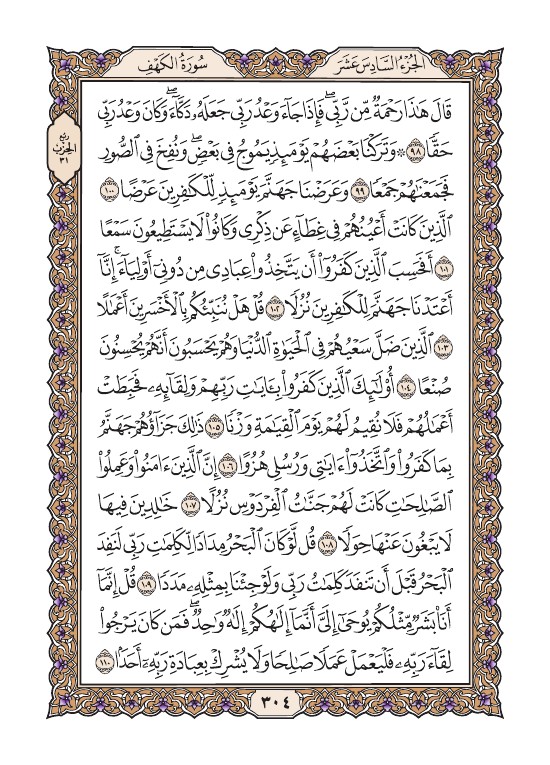 الجزء السادس عشر
سورة الكهف
ربع
الحزب
٣١
قَالَ هَٰذَا رَحْمَةٌ مِّن رَّبِّي ۖ فَإِذَا جَآءَ وَعْدُ رَبِّي جَعَلَهُۥ دَكَّآءَ ۖ وَكَانَ وَعْدُ رَبِّي
حَقًّا ٩٨ ۞ وَتَرَكْنَا بَعْضَهُمْ يَوْمَئِذٍ يَمُوجُ فِي بَعْضٍ ۖ وَنُفِخَ فِي ٱلصُّورِ
فَجَمَعْنَٰهُمْ جَمْعًا ٩٩ وَعَرَضْنَا جَهَنَّمَ يَوْمَئِذٍ لِّلْكَٰفِرِينَ عَرْضًا ١٠٠
ٱلَّذِينَ كَانَتْ أَعْيُنُهُمْ فِي غِطَآءٍ عَن ذِكْرِي وَكَانُوا۟ لَا يَسْتَطِيعُونَ سَمْعًا
١٠١ أَفَحَسِبَ ٱلَّذِينَ كَفَرُوٓا۟ أَن يَتَّخِذُوا۟ عِبَادِي مِن دُونِيٓ أَوْلِيَآءَ ۚ إِنَّآ
أَعْتَدْنَا جَهَنَّمَ لِلْكَٰفِرِينَ نُزُلًا ١٠٢ قُلْ هَلْ نُنَبِّئُكُم بِٱلْأَخْسَرِينَ أَعْمَٰلًا
١٠٣ ٱلَّذِينَ ضَلَّ سَعْيُهُمْ فِي ٱلْحَيَوٰةِ ٱلدُّنْيَا وَهُمْ يَحْسَبُونَ أَنَّهُمْ يُحْسِنُونَ
صُنْعًا ١٠٤ أُو۟لَٰٓئِكَ ٱلَّذِينَ كَفَرُوا۟ بِـَٔايَٰتِ رَبِّهِمْ وَلِقَآئِهِۦ فَحَبِطَتْ
أَعْمَٰلُهُمْ فَلَا نُقِيمُ لَهُمْ يَوْمَ ٱلْقِيَٰمَةِ وَزْنًا ١٠٥ ذَٰلِكَ جَزَآؤُهُمْ جَهَنَّمُ
بِمَا كَفَرُوا۟ وَٱتَّخَذُوٓا۟ ءَايَٰتِي وَرُسُلِي هُزُوًا ١٠٦ إِنَّ ٱلَّذِينَ ءَامَنُوا۟ وَعَمِلُوا۟
ٱلصَّٰلِحَٰتِ كَانَتْ لَهُمْ جَنَّٰتُ ٱلْفِرْدَوْسِ نُزُلًا ١٠٧ خَٰلِدِينَ فِيهَا
لَا يَبْغُونَ عَنْهَا حِوَلًا ١٠٨ قُل لَّوْ كَانَ ٱلْبَحْرُ مِدَادًا لِّكَلِمَٰتِ رَبِّي لَنَفِدَ
ٱلْبَحْرُ قَبْلَ أَن تَنفَدَ كَلِمَٰتُ رَبِّي وَلَوْ جِئْنَا بِمِثْلِهِۦ مَدَدًا ١٠٩ قُلْ إِنَّمَآ
أَنَا۠ بَشَرٌ مِّثْلُكُمْ يُوحَىٰٓ إِلَيَّ أَنَّمَآ إِلَٰهُكُمْ إِلَٰهٌ وَٰحِدٌ ۖ فَمَن كَانَ يَرْجُوا۟
لِقَآءَ رَبِّهِۦ فَلْيَعْمَلْ عَمَلًا صَٰلِحًا وَلَا يُشْرِكْ بِعِبَادَةِ رَبِّهِۦٓ أَحَدًۢا ١١٠
٣٠٤